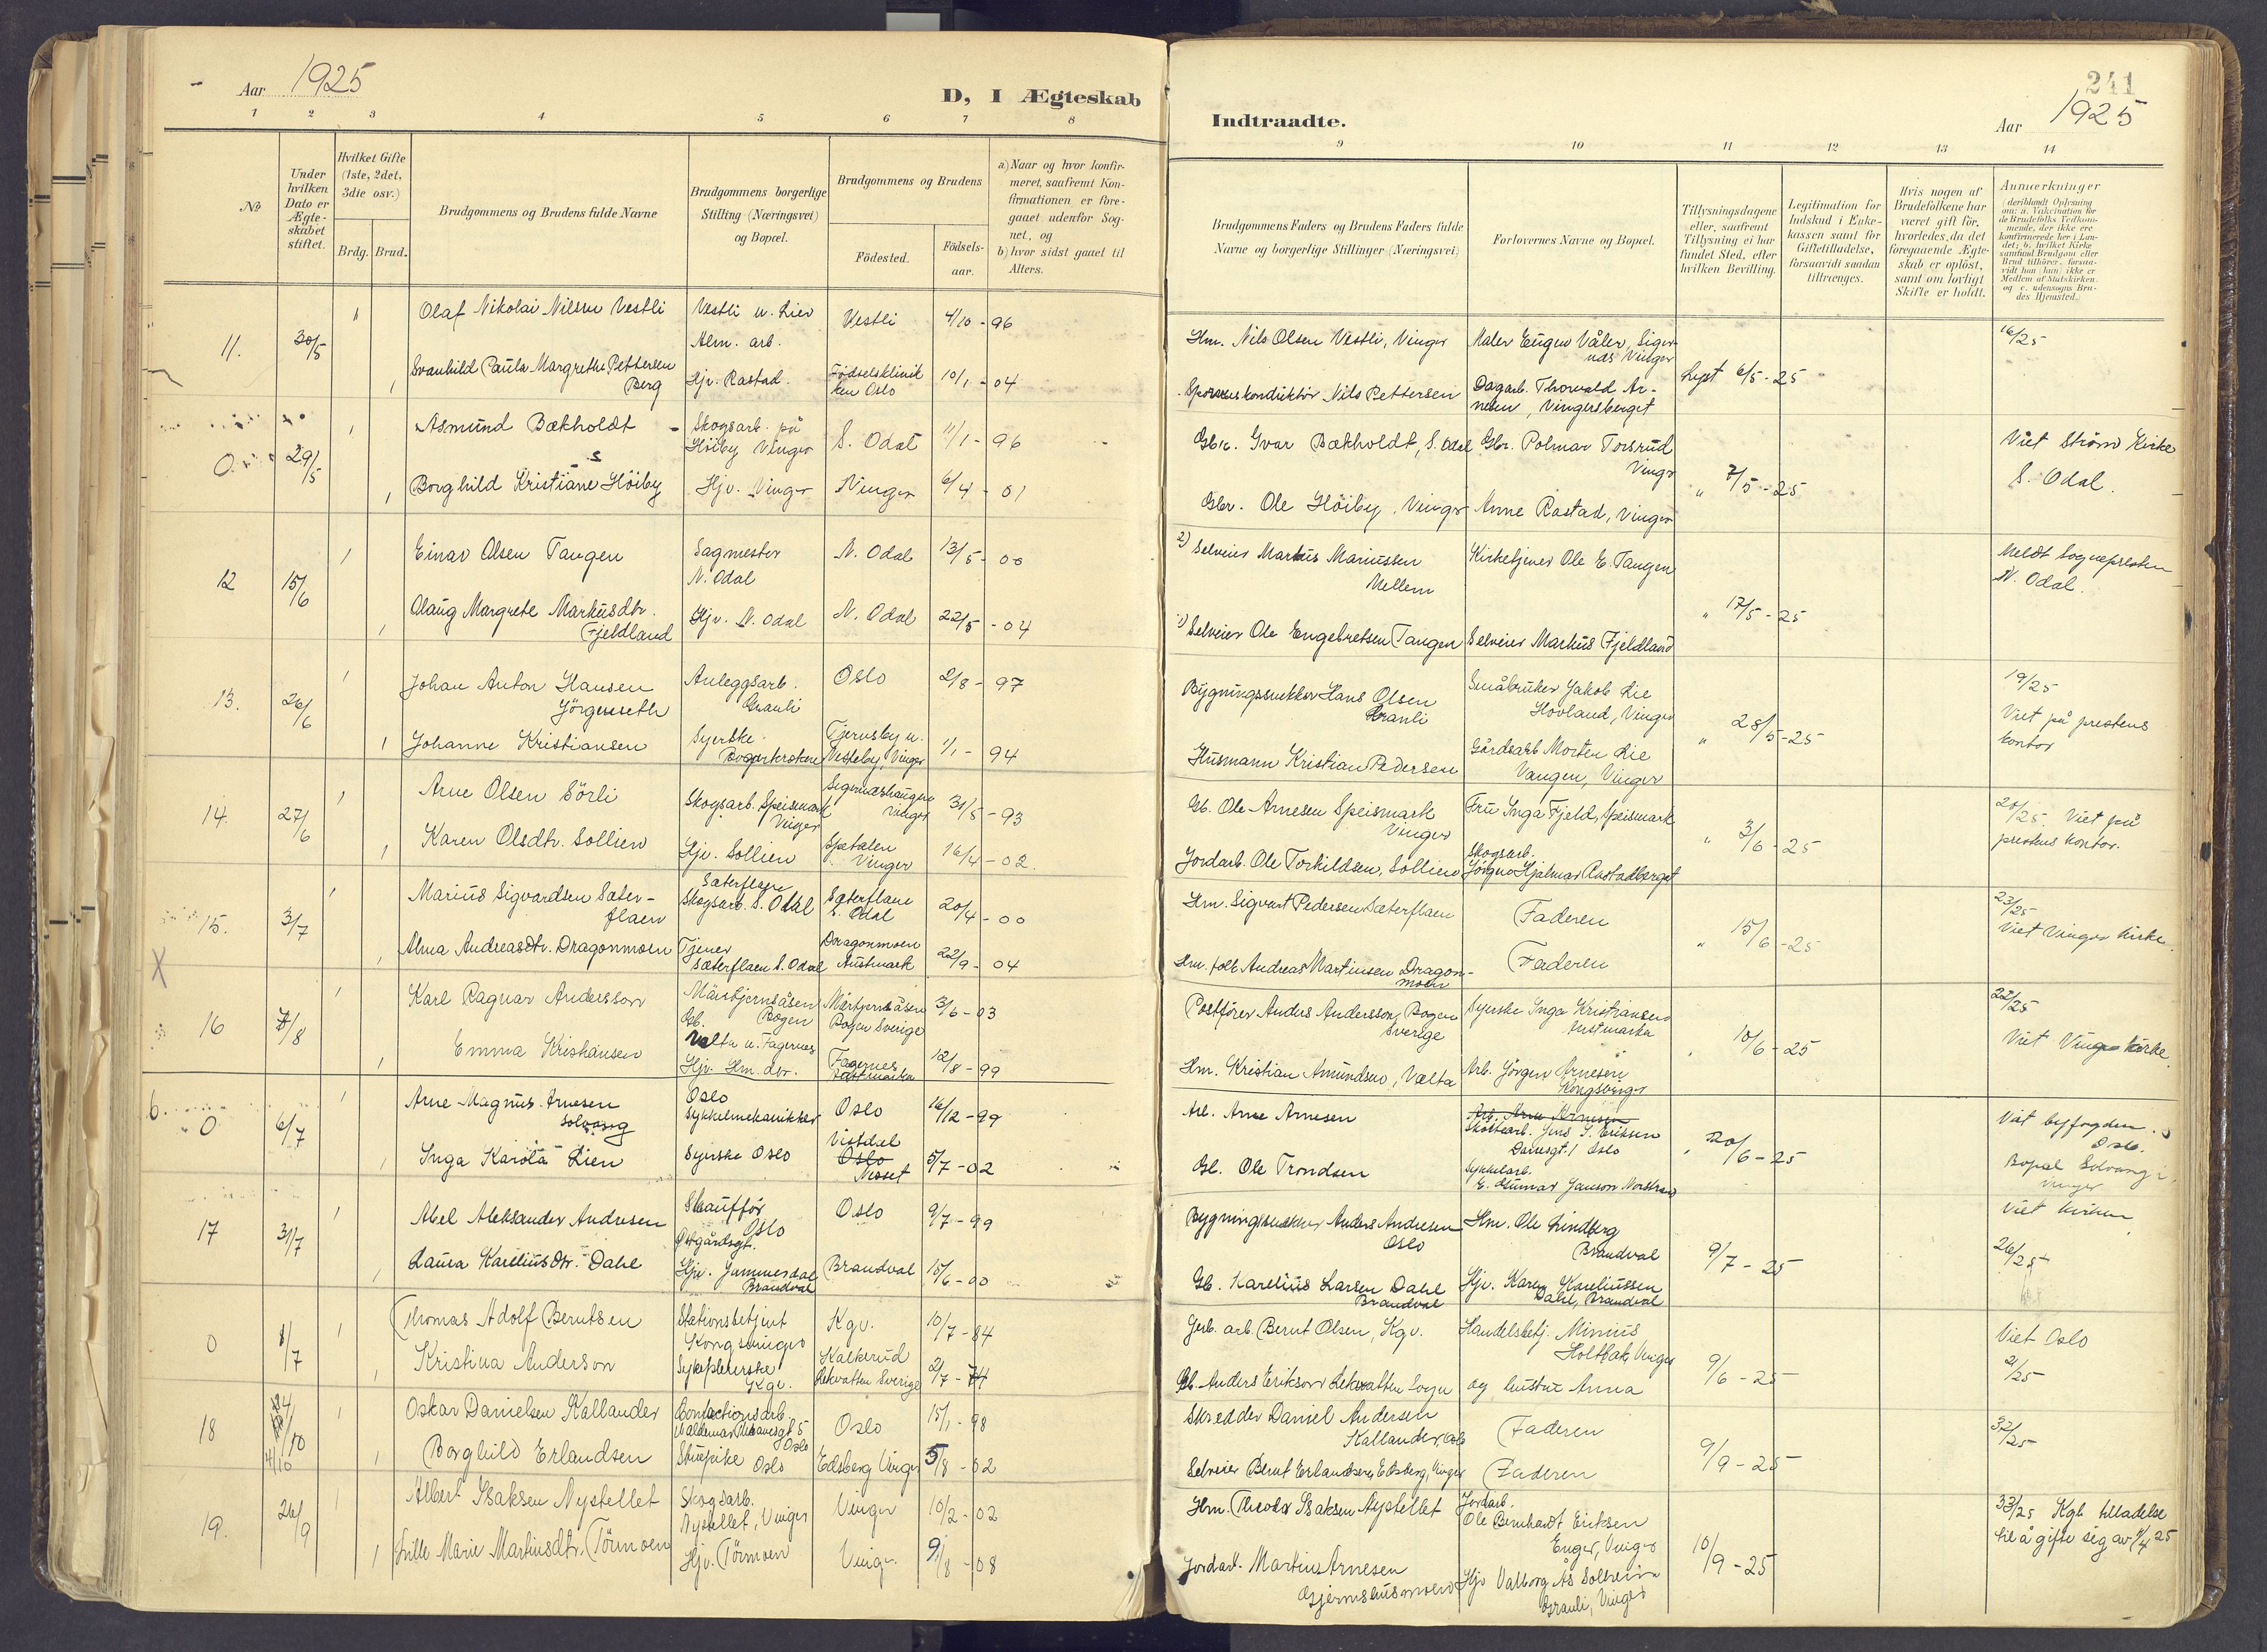 Aar 1925
D, I Ægteskab
1 2 3 4 5 6 7 8
№
Under hvilken Dato er Ægteskabet stiftet.
Hvilket Gifte (1ste, 2det, 3die osv.)
Brdg. Brud.
Brudgommens og Brudens fulde Navne
Brudgommens borgerlige Stilling (Næringsvei) og Bopæl.
Brudgommens og Brudens
Födested.
Födsels-aar.
a) Naar og hvor konfir-
meret, saafremt Kon-
firmationen er fore-
gaaet udenfor Sog-
net, og
b) hvor sidst gaaet til
Alters.
11. 30/5
1 Olaf Nikolai Nilsen Vestli Vestli u. Lier Alm. arb. Vestli 4/10 - 96
1 Svanhild Paula Margrethe Pettersen Berg Hjv. Rastad. Födselsklinikken Oslo 10/1 - 04
0 29/5
1 Asmund Bækholdt - Skogsarb. på Höiby Vinger S. Odal 11/1 - 96
1 Borghild Kristiane Höiby Hjv. Vinger Vinger 6/4 - 01
12 15/6
1 Einar Olsen Tangen Sagmester N. Odal N. Odal 13/5 - 00
1 Olaug Margrete Markusdtr. Fjeldland Hjv. N. Odal N. Odal 22/5 - 04
13. 26/6
1 Johan Anton Hansen Jörgenseth Anleggsarb. Granli Oslo 2/8 - 97
1 Johanne Kristiansen Syerske Tjernsby u. Vesteby, Vinger 1/1 - 94
14. 27/6
1 Arne Olsen Sörli Skogsarb. Speismark Vinger Sigernæshaugen Vinger 31/5 - 93
1 Karen Olsdtr. Sollien Hjv. Sollien Spetalen Vinger 16/4 - 02
15. 3/7
1 Marius Sigvardsen Sæterflaen Sæterflaen Skogsarb. S. Odal Sæterflaen S. Odal 20/4 - 00
1 Alma Andreasdtr. Dragonmoen Tjener Sæterflaen S. Odal Dragonmoen Austmark 22/9 - 04
X
16 7/8
1 Karl Ragnar Andersson Gb. Bogen Bogen Sverige 3/6 - 03
1 Emma Kristiansen Valta u. Fagernes Hjv. Hm. dtr. Fagernes Austmarka 12/8 - 99
6. 0 6/7
1 Arne Magnus Arnesen Solvang Oslo Sykkelmekanikker Oslo 16/12 - 99
1 Inga Karola Lien Syerske Oslo Vistdal Oslo Nesset 5/7 - 02
17 31/7
1 Abel Aleksander Andresen Skauffør Oslo Østgårdsgt. Oslo 9/7 - 99
1 Laura Kareliusdtr. Dahl Hjv. Gunnersdal Brandval Brandval 15/6 - 00
0 1/7
1 Thomas Adolf Berntsen Stationsbetjent Kongsvinger Kgv. 10/7 - 84
1 Kristina Anderson Sykepleierske Kgv. Kalkerud Lekvatten Sverige 2/7 - 74
18 24/10 4/10
1 Oskar Danielsen Kallander Confectionsarb. Waldemar Thranesgt 5 Oslo Oslo 15/1 - 98
1 Borghild Erlandsen Stuepike Oslo Edsberg Vinger 5/8 - 02
19. 26/9
1 Albert Isaksen Nystellet Skogsarb. Nystellet, Vinger Vinger 10/2 - 02
1 Lille Marie Martinsdtr. Törmoen Hjv. Törmoen Vinger 9/8 - 08
241
Indtraadte.
Aar 1925
9 10 11 12 13 14
Brudgommens Faders og Brudens Faders fulde
Navne og borgerlige Stillinger (Næringsvei)
Forlovernes Navne og Bopæl.
Tillysningsdagene eller, saafremt Tillysning ei har fundet Sted, efter hvilken Bevilling.
Legitimation for Indskud i Enke-kassen samt for Giftetilladelse, forsaavidt saadan tiltrænges.
Hvis nogen af Brudefolkene har været gift för, hvorledes, da det foregaaende Ægte-skab er oplöst, samt om lovligt Skifte er holdt.
Anmærkninger
(deriblandt Oplysning om: a. Vakcination for de Brudefolks Vedkom-mende, der ikke ere konfirmerede her i Lan-det; b. hvilket Kirke samfund Brudgom eller Brud tilhörer, forsaa-vidt han (hun) ikke er Medlem af Statskirken, og c. udensogns Bru-des Hjemsted.)
Hm. Nils Olsen Vestli, Vinger Maler Eugen Våler, Sigernes Vinger Lyst 6/5 - 25 16/25
Sporveiskonduktör Nils Pettersen Dagarb. Thorvald Arnesen, Vingersberget
Gbr. Ivar Bækholdt, S. Odal Gbr. Polmar Torsrud Vinger " 7/5 - 25 Viet Ström Kirke S. Odal.
Gbr. Ole Höiby, Vinger Anne Rastad, Vinger
2) Selveier Markus Mariussen Mellem Kirketjener Ole E. Tangen " 17/5 - 25 Meldt Sognepresten N. Odal.
1) Selveier Ole Engebretsen Tangen Selveier Markus Fjeldland
Bygningssnekker Hans Olsen Granli Småbruker Jakob Lie Hovland, Vinger " 28/5 - 25 19/25 Viet på prestens kontor
Husmann Kristian Pedersen Gårdsarb. Morten Lie Vangen, Vinger
Gb. Ole Arnesen Speismark Vinger Fru Inga Fjeld, Speismark " 3/6 - 25 20/25 Viet på prestens kontor.
Jordarb. Ole Torkildsen, Sollien Skogsarb. Jörgen Hjalmar Rastadberget
Hm. Sigvart Pedersen Sæterflaen Faderen " 15/6 - 25 23/25 Viet Vinger kirke.
Hm. folk Andreas Martinsen Dragonmoen Faderen
Postförer Anders Andersson, Bogen Sverige Syerske Inga Kristiansen Austmarka " 10/6 - 25 22/25 Viet Vinger kirke
Hm. Kristian Amundsen, Valta Arb. Jörgen Arnesen Kongsvinger
Arb. Arne Arnesen Arb. Arne Arnesen Jens S. Eriksen Oslo " 20/6 - 25 Viet byfogden Oslo. Bopæl Solvang i Vinger
Gb. Ole Trondsen Sykkelarb. E. Gunnar Janson
Bygningssnekker Anders Andresen Oslo Hm. Ole Lindberg Brandval 9/7 - 25 Viet kirken 26/25
Gb. Karelius Larsen Dahl Brandval Hjv. Karen Kareliussen Dahl, Brandval
Gerb. arb. Bernt Olsen, Kgv. Handelsbetj. Minius Holtbak Vinger 9/6 - 25 Viet Oslo 21/25
Gb. Anders Erikson Lekvatten Sogn og hustru Anna
Skredder Daniel Andersen Kallander, Oslo Faderen 9/9 - 25 32/25
Selveier Bernt Erlandsen, Edsberg, Vinger Faderen
Hm. Theodor Isaksen Nystellet Jordarb. Ole Bernhardt Eriksen Enger, Vinger 10/9 - 25 33/25 Kgl. tilladelse til å gifte sig av 4/4 25
Jordarb. Martin Arnesen Gjermshusmoen Hjv Valborg Ås Solheim Granli, Vinger